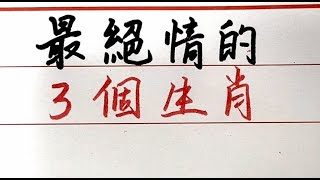 最絕情的
3個生肖